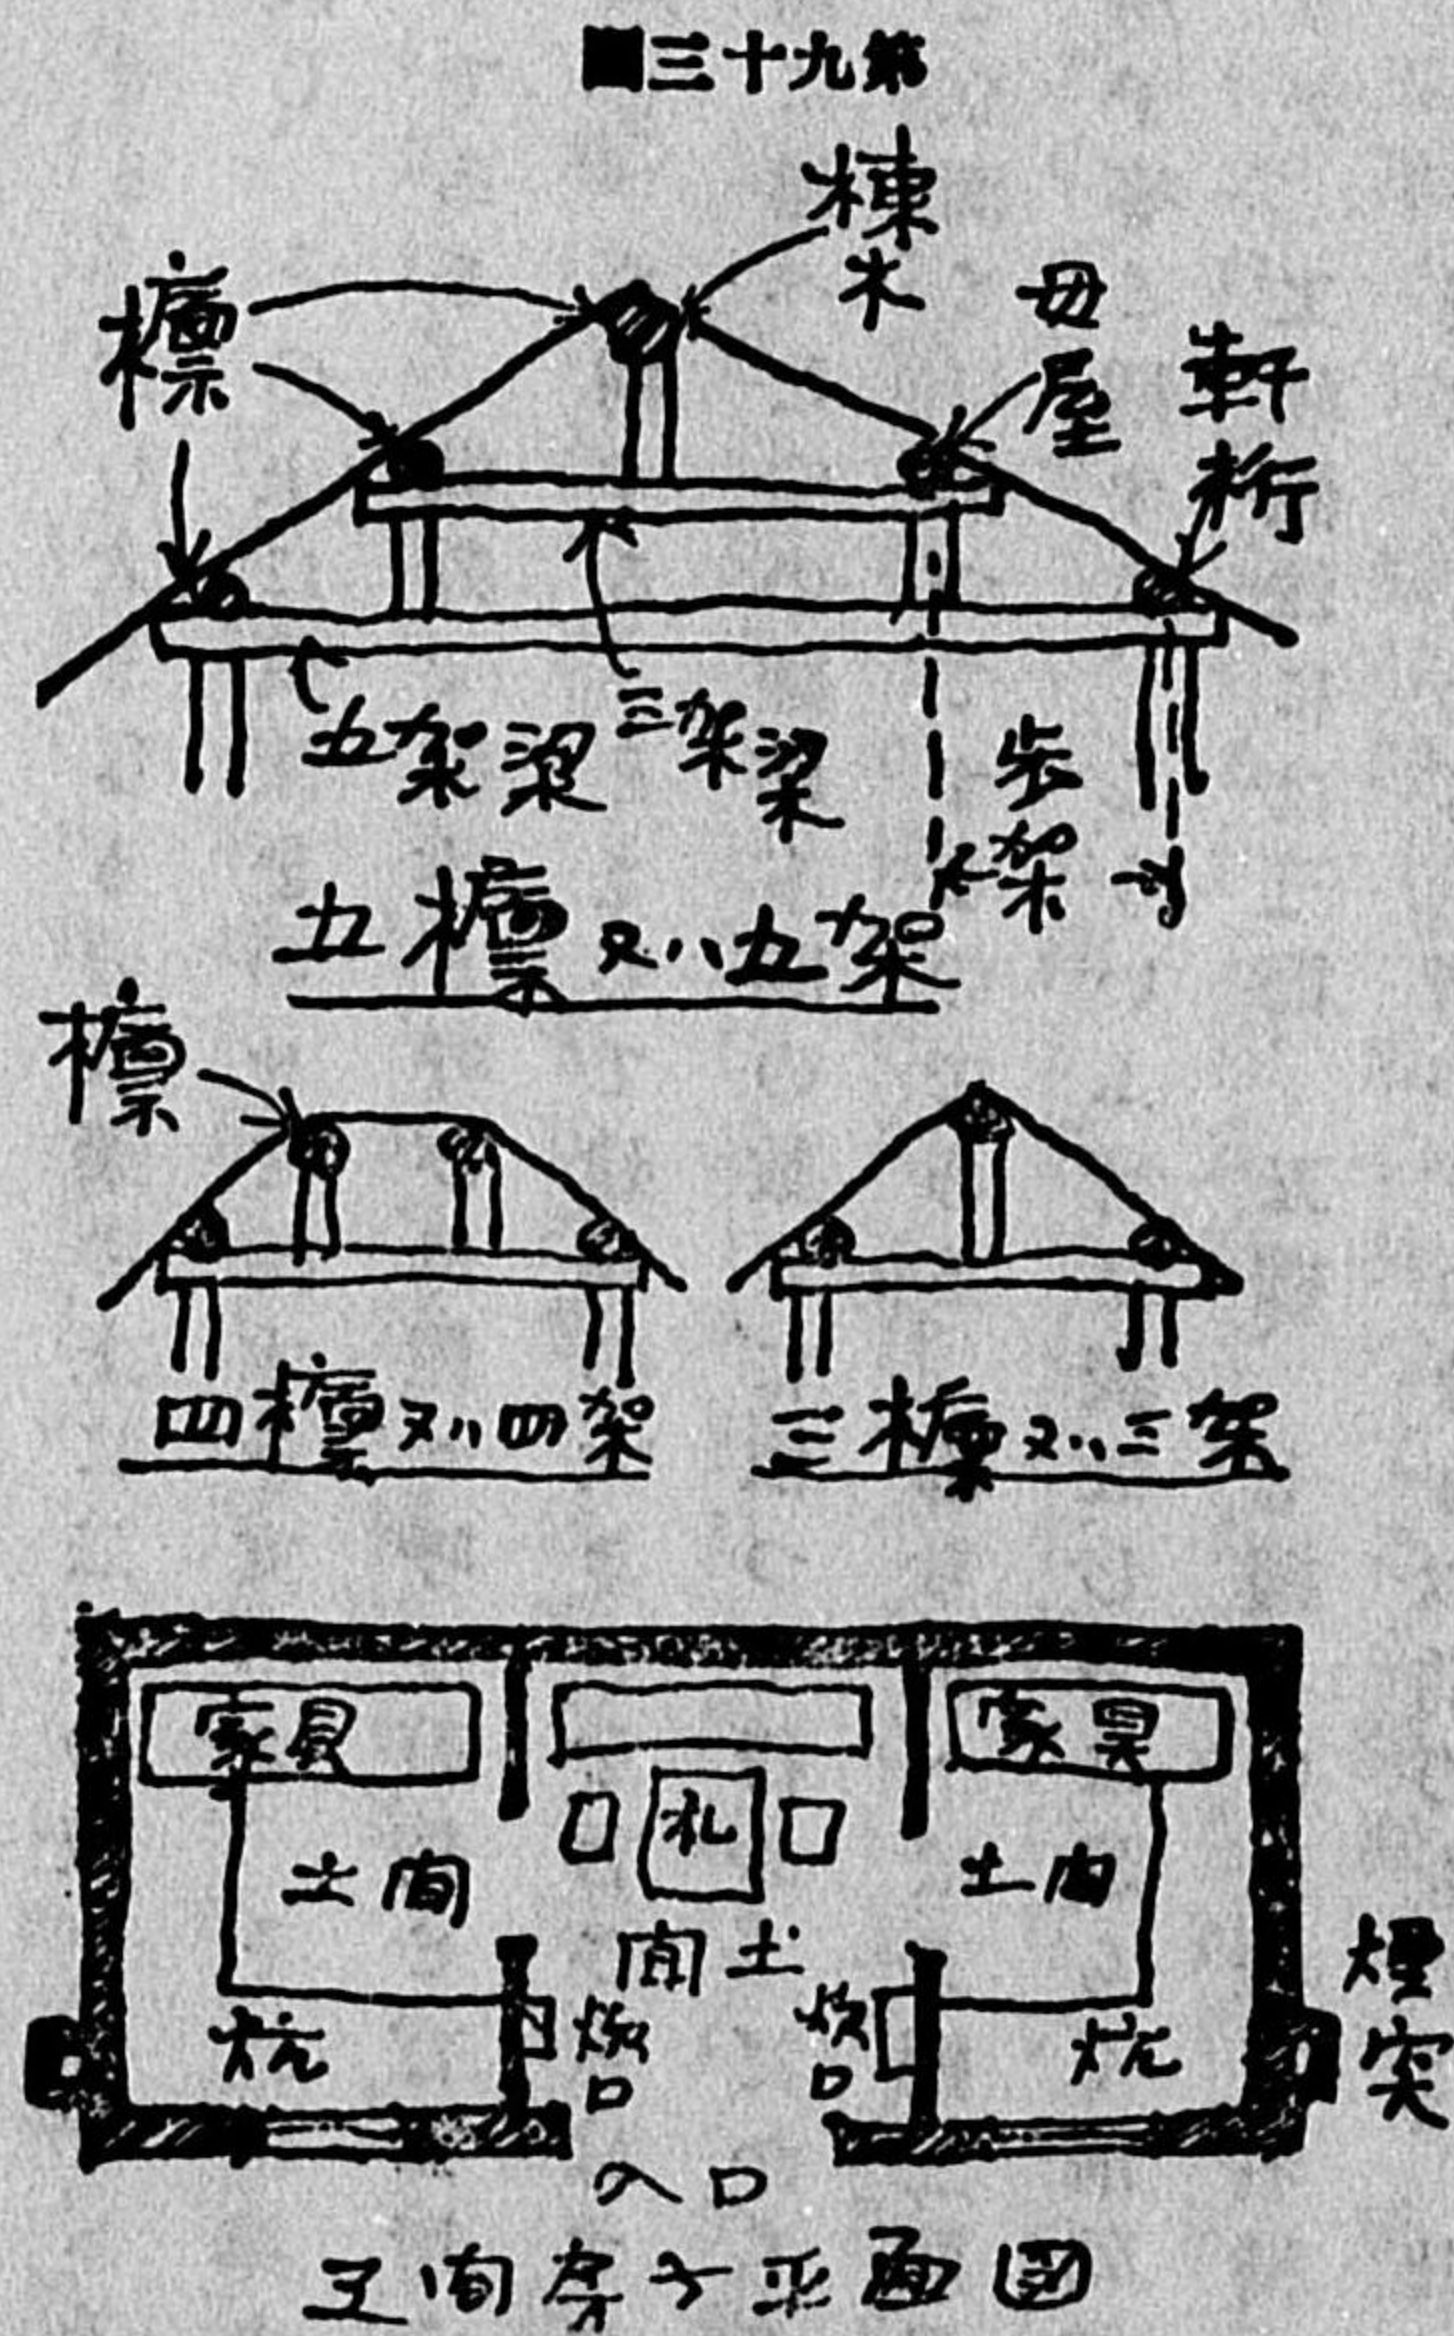 第九十三圖
棟木
檁
母屋
軒桁
五架梁
三架梁
歩架
五檁又ハ五架
檁
四檁又ハ四架
三檁又ハ三架
家具
家具
机
土間
土間
土間
煙突
炕
焚口
焚口
炕
入口
三間房子平面圖